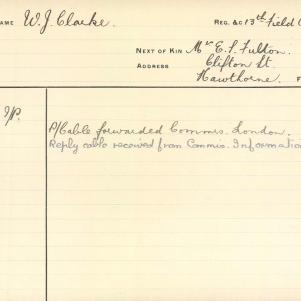 NAME W.J. Clarke. REG. &C 13th Field
NEXT OF KIN Mr E.S. Fulton.
ADDRESS Clifton St.
Hawthorne.
P/Cable forwarded Commis. London.
Reply cable received from Commis. Information